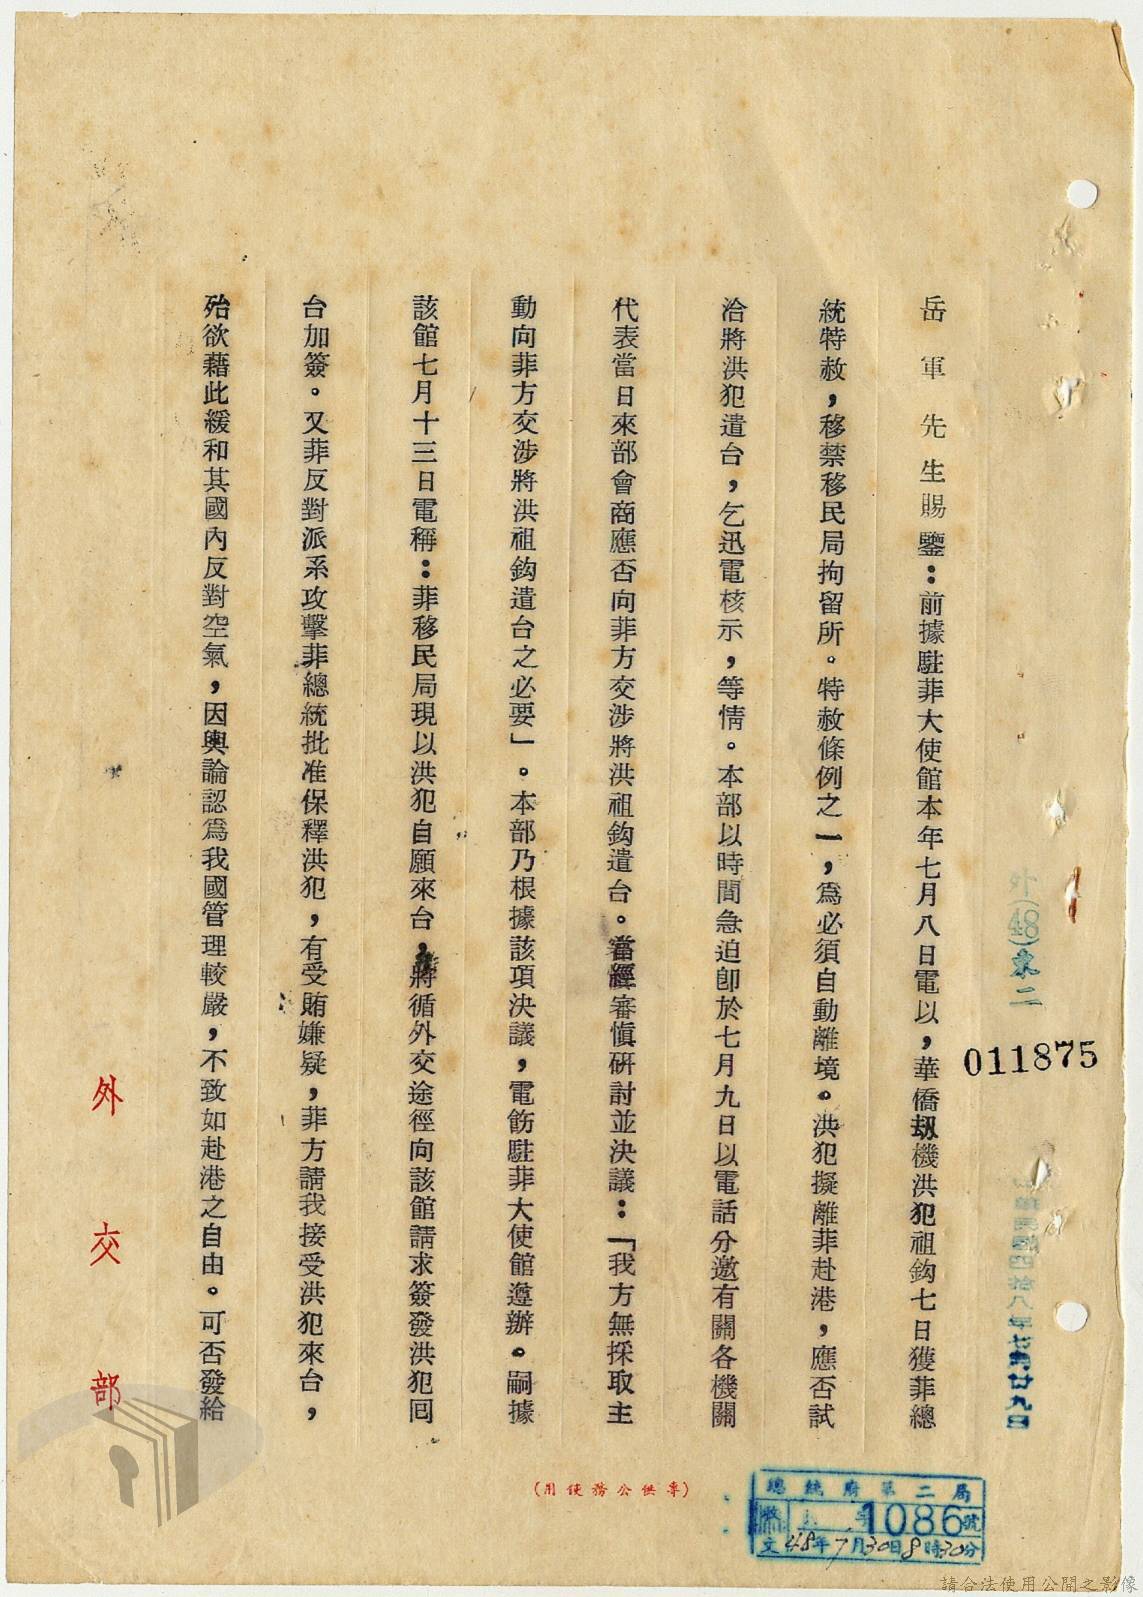 外(48)東二
011875
中華民國四拾八年七月廿九日
岳軍先生賜鑒：前據駐菲大使館本年七月八日電以，華僑刼機洪犯祖鈎七日獲菲總
統特赦，移禁移民局拘留所。特赦條例之一，為必須自動離境。洪犯擬離菲赴港，應否試
洽將洪犯遣台，乞迅電核示，等情。本部以時間急迫卽於七月九日以電話分邀有關各機關
代表當日來部會商應否向菲方交涉將洪祖鈎遣台。當經審慎研討並決議：「我方無採取主
動向菲方交涉將洪祖鈎遣台之必要」。本部乃根據該項決議，電飭駐菲大使館遵辦。嗣據
該館七月十三日電稱：菲移民局現以洪犯自願來台，將循外交途徑向該館請求簽發洪犯回
台加簽。又菲反對派系攻擊菲總統批准保釋洪犯，有受賄嫌疑，菲方請我接受洪犯來台，
殆欲藉此緩和其國內反對空氣，因輿論認爲我國管理較嚴，不致如赴港之自由。可否發給
外交部
(專供公務使用)
總統府第二局
收文 字1086號
48年7月30日8時30分
請合法使用公開之影像